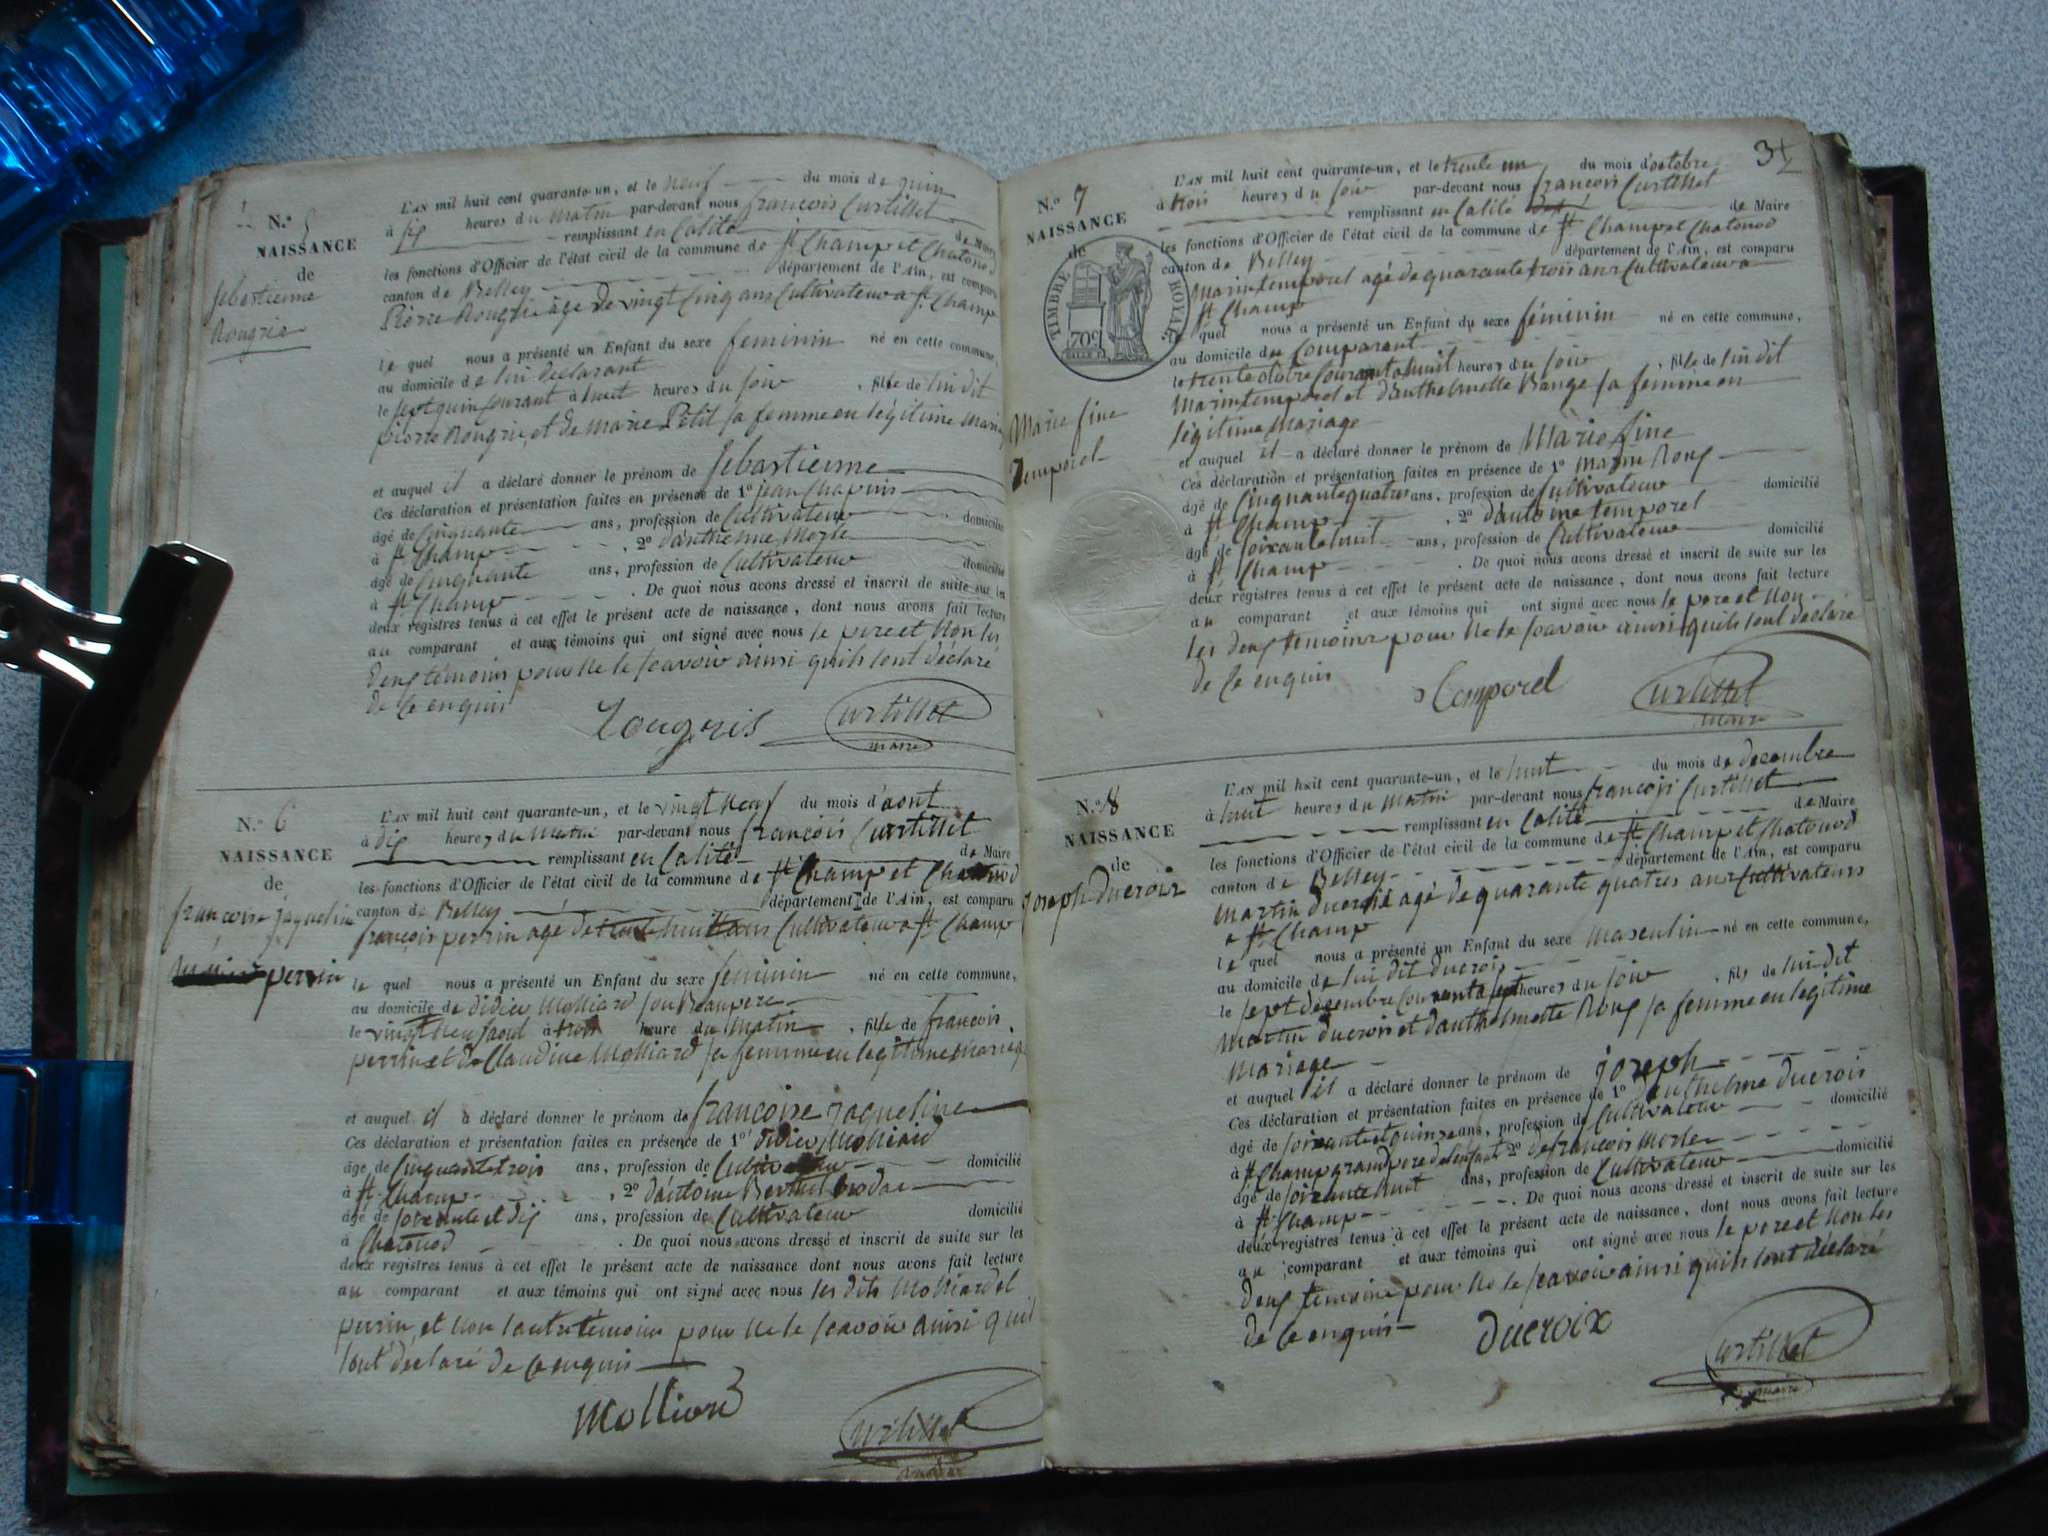 N.º 5
NAISSANCE
de
Sebastienne
Rougris
L'AN mil huit cent quarante-un, et le neuf du mois de juin
à six heures du matin par-devant nous françois Curtillet
remplissant en Calité de Maire
les fonctions d'Officier de l'état civil de la commune de St Champ et Chatonod
canton de Belley département de l'Ain, est comparu
Pierre Rougris âgé de vingt Cinq ans Cultivateur a St Champ
le quel nous a présenté un Enfant du sexe feminin né en cette commune,
au domicile de lui declarant
le sept juin Courant à huit heures du soir , fille de lui dit
pierre Rougris et de marie Petit sa femme en légitime mariage
et auquel il a déclaré donner le prénom de Sebastienne
Ces déclaration et présentation faites en présence de 1º jean Chapuis
âgé de Cinquante ans, profession de Cultivateur domicilié
à St Champ , 2º d'anthelme Morle
âgé de Cinquante ans, profession de Cultivateur domicilié
à St Champ . De quoi nous avons dressé et inscrit de suite sur les
deux registres tenus à cet effet le présent acte de naissance, dont nous avons fait lecture
au comparant et aux témoins qui ont signé avec nous le pere et Non les
deux témoins pour ne le scavoir ainsi quils lont déclaré
de ce enquis
Rougris Curtillet
maire
N.º 6
NAISSANCE
de
françoise jaqueline
perrin
L'AN mil huit cent quarante-un, et le vingt Neuf du mois d'aout
à dix heures du Matin par-devant nous françois Curtillet
remplissant en Calité de Maire
les fonctions d'Officier de l'état civil de la commune de St Champ et Chatonod
canton de Belley département de l'Ain, est comparu
françois perrin agé de trente huit ans Cultivateur a St Champ
le quel nous a présenté un Enfant du sexe feminin né en cette commune,
au domicile de didier Molliard son Beaupere
le vingt Neuf aout à trois heure du Matin , fille de francois
perrin et de Claudine Molliard sa femme en legitime Mariage
et auquel il a déclaré donner le prénom de françoise jaqueline
Ces déclaration et présentation faites en présence de 1º didier Molliard
âgé de Cinquante trois ans, profession de Cultivateur domicilié
à St Champ , 2º d'antoine Berthet
âgé de soixante et dix ans, profession de Cultivateur domicilié
à Chatonod . De quoi nous avons dressé et inscrit de suite sur les
deux registres tenus à cet effet le présent acte de naissance dont nous avons fait lecture
au comparant et aux témoins qui ont signé avec nous les dits Molliard et
perrin et non lautre témoin pour ne le scavoir ainsi quil
lont déclaré de ce enquis
Molliard Curtillet
maire
34
N.º 7
NAISSANCE
de
TIMBRE ROYAL
70c
Marie fine
Temporel
L'AN mil huit cent quarante-un, et le trente un du mois d'octobre
à trois heures du soir par-devant nous françois Curtillet
remplissant en Calité de Maire
les fonctions d'Officier de l'état civil de la commune de St Champ et Chatonod
canton de Belley département de l'Ain, est comparu
Marin temporel agé de quarante trois ans Cultivateur a
St Champ
le quel nous a présenté un Enfant du sexe féminin né en cette commune,
au domicile du Comparant
le trente octobre Courant a huit heures du soir , fille de lui dit
Marin temporel et d'anthelmette Bange sa femme en
légitime Mariage
et auquel il a déclaré donner le prénom de Marie fine
Ces déclaration et présentation faites en présence de 1º Marin Roux
âgé de Cinquante quatre ans, profession de Cultivateur domicilié
à St Champ , 2º d'antoine temporel
âgé de soixante huit ans, profession de Cultivateur domicilié
à St Champ . De quoi nous avons dressé et inscrit de suite sur les
deux registres tenus à cet effet le présent acte de naissance, dont nous avons fait lecture
au comparant et aux témoins qui ont signé avec nous le pere et Non
les deux temoins pour ne le scavoir ainsi quils lont déclaré
de ce enquis
Temporel Curtillet
maire
N.º 8
NAISSANCE
de
joseph Ducroix
L'AN mil huit cent quarante-un, et le huit du mois de decembre
à huit heures du Matin par-devant nous françois Curtillet
remplissant en Calité de Maire
les fonctions d'Officier de l'état civil de la commune de St Champ et Chatonod
canton de Belley département de l'Ain, est comparu
Martin ducroix agé de quarante quatres ans Cultivateurs
a St Champ
le quel nous a présenté un Enfant du sexe Masculin né en cette commune,
au domicile de lui dit ducrois
le sept decembre Courant a sept heures du soir , fils de lui dit
Martin ducrois et d'anthelmette Roux sa femme en legitime
Mariage
et auquel il a déclaré donner le prénom de joseph
Ces déclaration et présentation faites en présence de 1º anthelme ducrois
âgé de soixante et quinze ans, profession de Cultivateur domicilié
à St Champ grand pere de lenfant 2º de françois Morle
âgé de soixante huit ans, profession de Cultivateur domicilié
à St Champ . De quoi nous avons dressé et inscrit de suite sur les
deux registres tenus à cet effet le présent acte de naissance, dont nous avons fait lecture
au comparant et aux témoins qui ont signé avec nous le pere et Non les
deux temoins pour ne le scavoir ainsi quils lont déclaré
de ce enquis
Ducroix Curtillet
maire